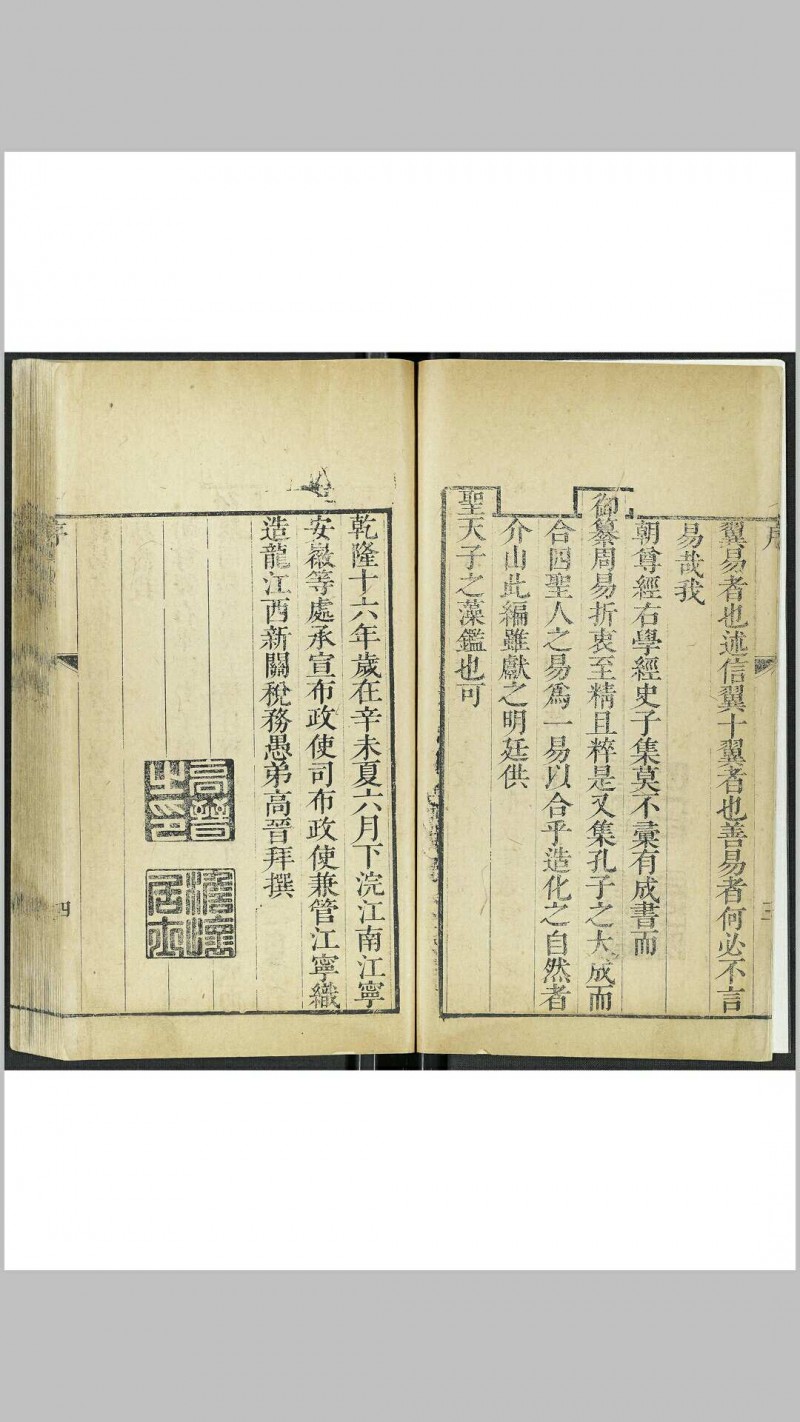 序
翼易者也述信翼十翼者也善易者何必不言
易哉我
朝尊經右學經史子集莫不彙有成書而
御纂周易折衷至精且粹是又集孔子之大成而
合四聖人之易爲一易以合乎造化之自然者
介山此編雖獻之明廷供
聖天子之藻鑑也可
三
乾隆十六年歲在辛未夏六月下浣江南江寧
安徽等處承宣布政使司布政使兼管江寧織
造龍江西新關稅務愚弟高晉拜撰
高晉
之印
序
四